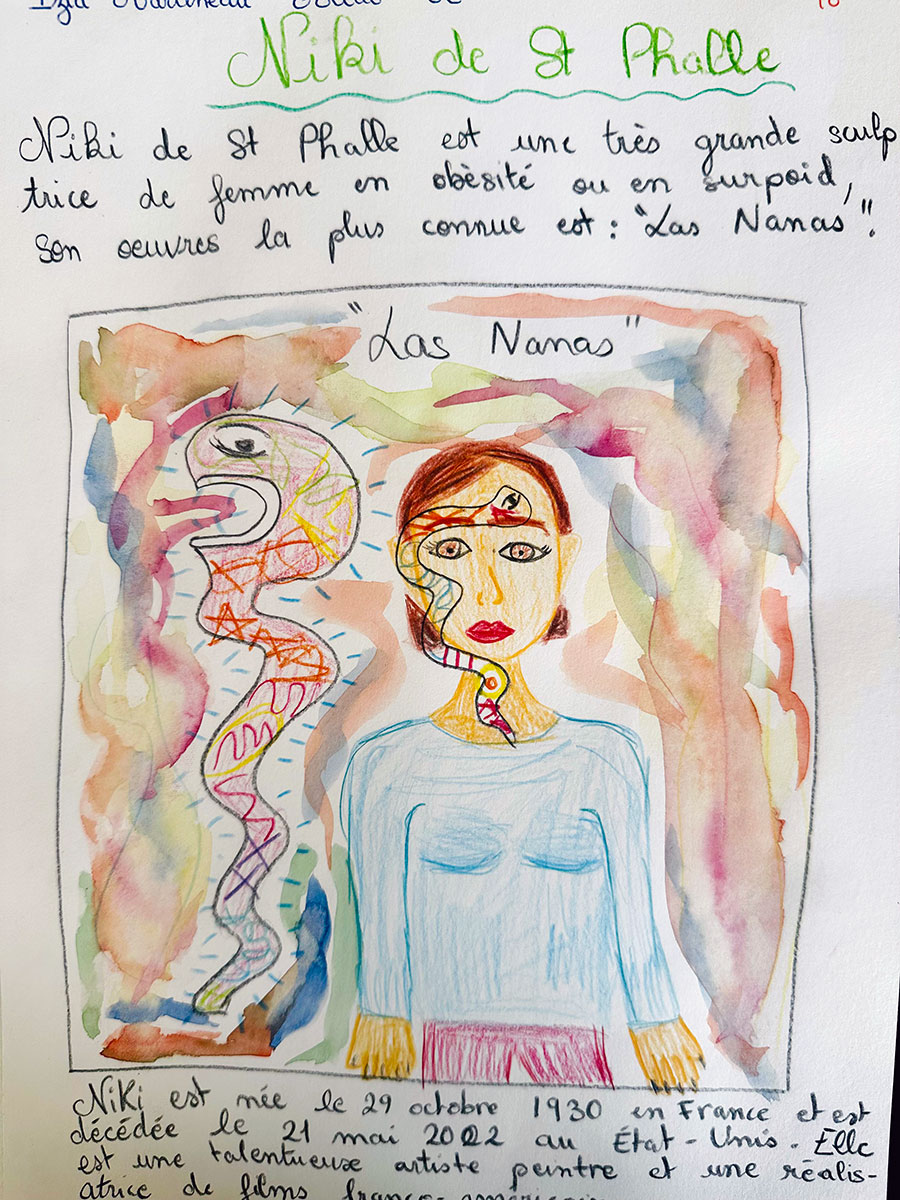 Niki de St Phalle
Niki de St Phalle est une très grande sculp
trice de femme en obèsité ou en surpoid,
son oeuvres la plus connue est : "Las Nanas".
"Las Nanas"
Niki est née le 29 octobre 1930 en France et est
décédée le 21 mai 2002 au État-Unis. Elle
est une talentueuse artiste peintre et une réalis-
atrice de films franco-américain